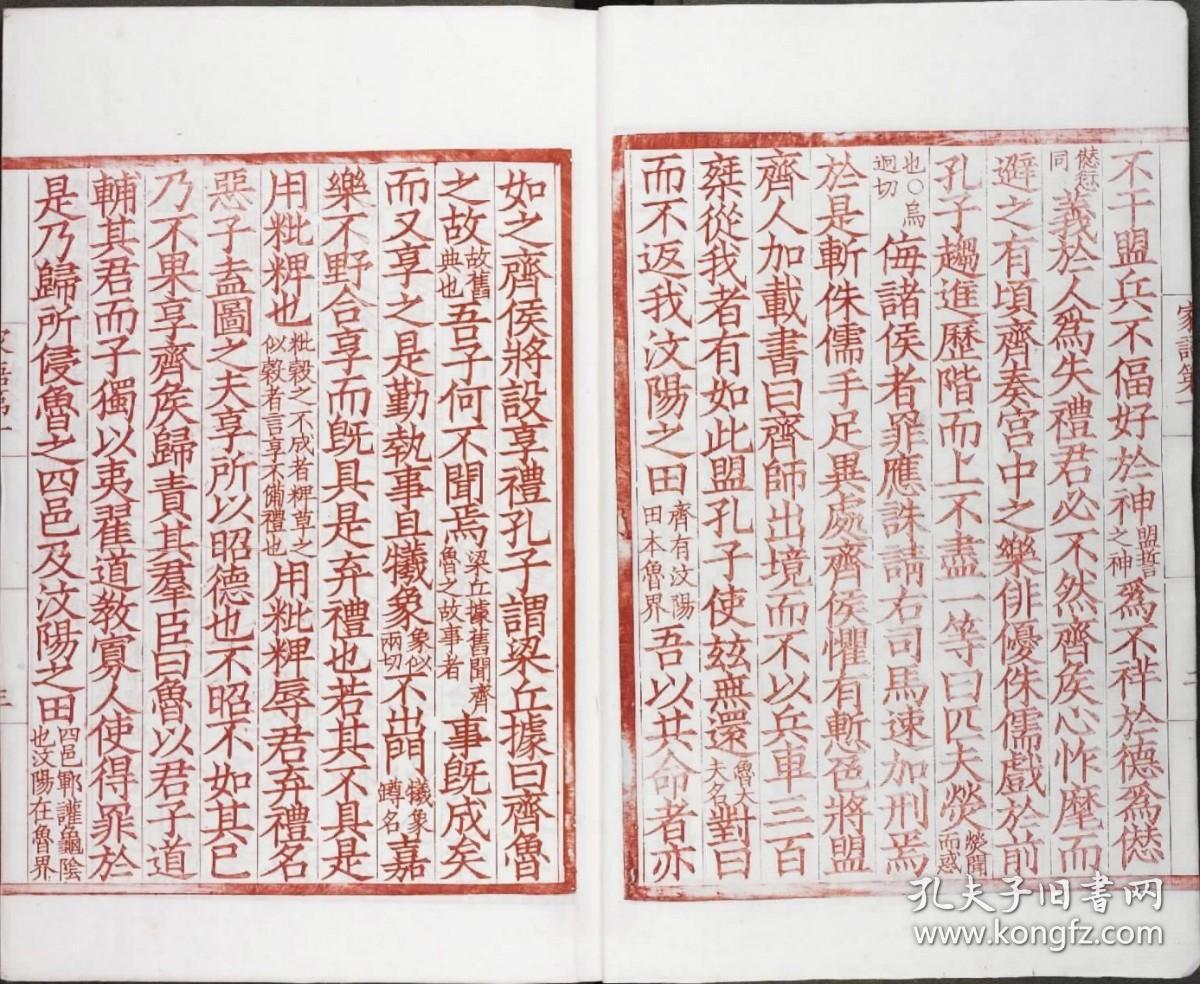 不干盟兵不偪好於神盟誓之神為不祥於德為愆
愆愆同義於人為失禮君必不然齊侯心怍麾而
避之有頃齊奏宮中之樂俳優侏儒戲於前
孔子趨進歷階而上不盡一等曰匹夫熒熒聞而惑
也○烏迥切侮諸侯者罪應誅請右司馬速加刑焉
於是斬侏儒手足異處齊侯懼有慙色將盟
齊人加載書曰齊師出境而不以兵車三百
椉從我者有如此盟孔子使兹無還魯大夫名對曰
而不返我汶陽之田齊有汶陽田本魯界吾以共命者亦
如之齊侯將設享禮孔子謂梁丘據曰齊魯
之故故舊典也吾子何不聞焉梁丘據舊聞齊魯之故事者事既成矣
而又享之是勤執事且犧象象似兩切不出門犧象罇名嘉
樂不野合享而既具是弃禮也若其不具是
用粃粺也粃穀之不成者粺草之似穀者言享不備禮也用粃粺辱君弃禮名
惡子盍圖之夫享所以昭德也不昭不如其已
乃不果享齊侯歸責其羣臣曰魯以君子道
輔其君而子獨以夷翟道教寡人使得罪於
是乃歸所侵魯之四邑及汶陽之田四邑鄆讙龜陰也汶陽在魯界
孔夫子旧书网
www.kongfz.com